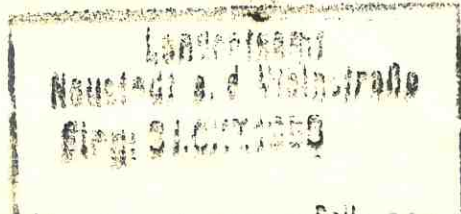 Landratsamt
Neustadt a. d. Weinstraße
Eing. 31.OKT.